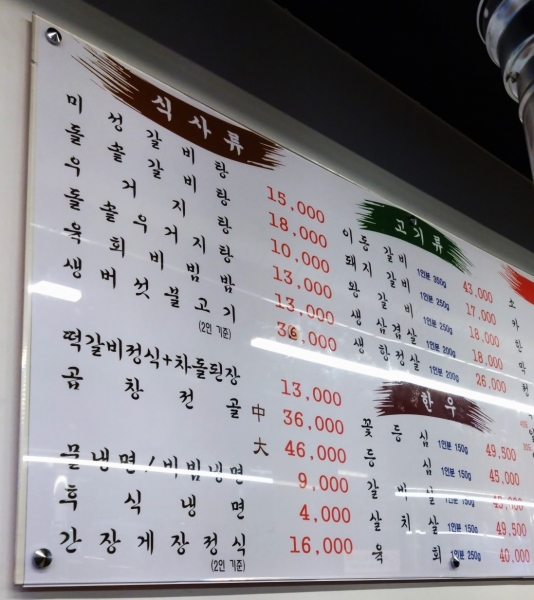 식사류
미성갈비탕 15,000
돌솥갈비탕 18,000
우거지탕 10,000
돌솥우거지탕 13,000
육회비빔밥 13,000
생버섯불고기 36,000
(2인 기준)
떡갈비정식+차돌된장 13,000
곱창전골 中 36,000
大 46,000
물냉면/비빔냉면 9,000
후식냉면 4,000
간장게장정식 16,000
(2인 기준)
고기류
이동갈비 1인분 350g 43,000
돼지갈비 1인분 250g 17,000
왕갈비 1인분 250g 18,000
생삼겹살 1인분 200g 18,000
생항정살 1인분 200g 26,000
한우
꽃등심 1인분 150g 49,500
등심 1인분 150g 45,000
갈비살 1인분 150g
살치살 1인분 150g 49,500
육회 1인분 250g 40,000
소